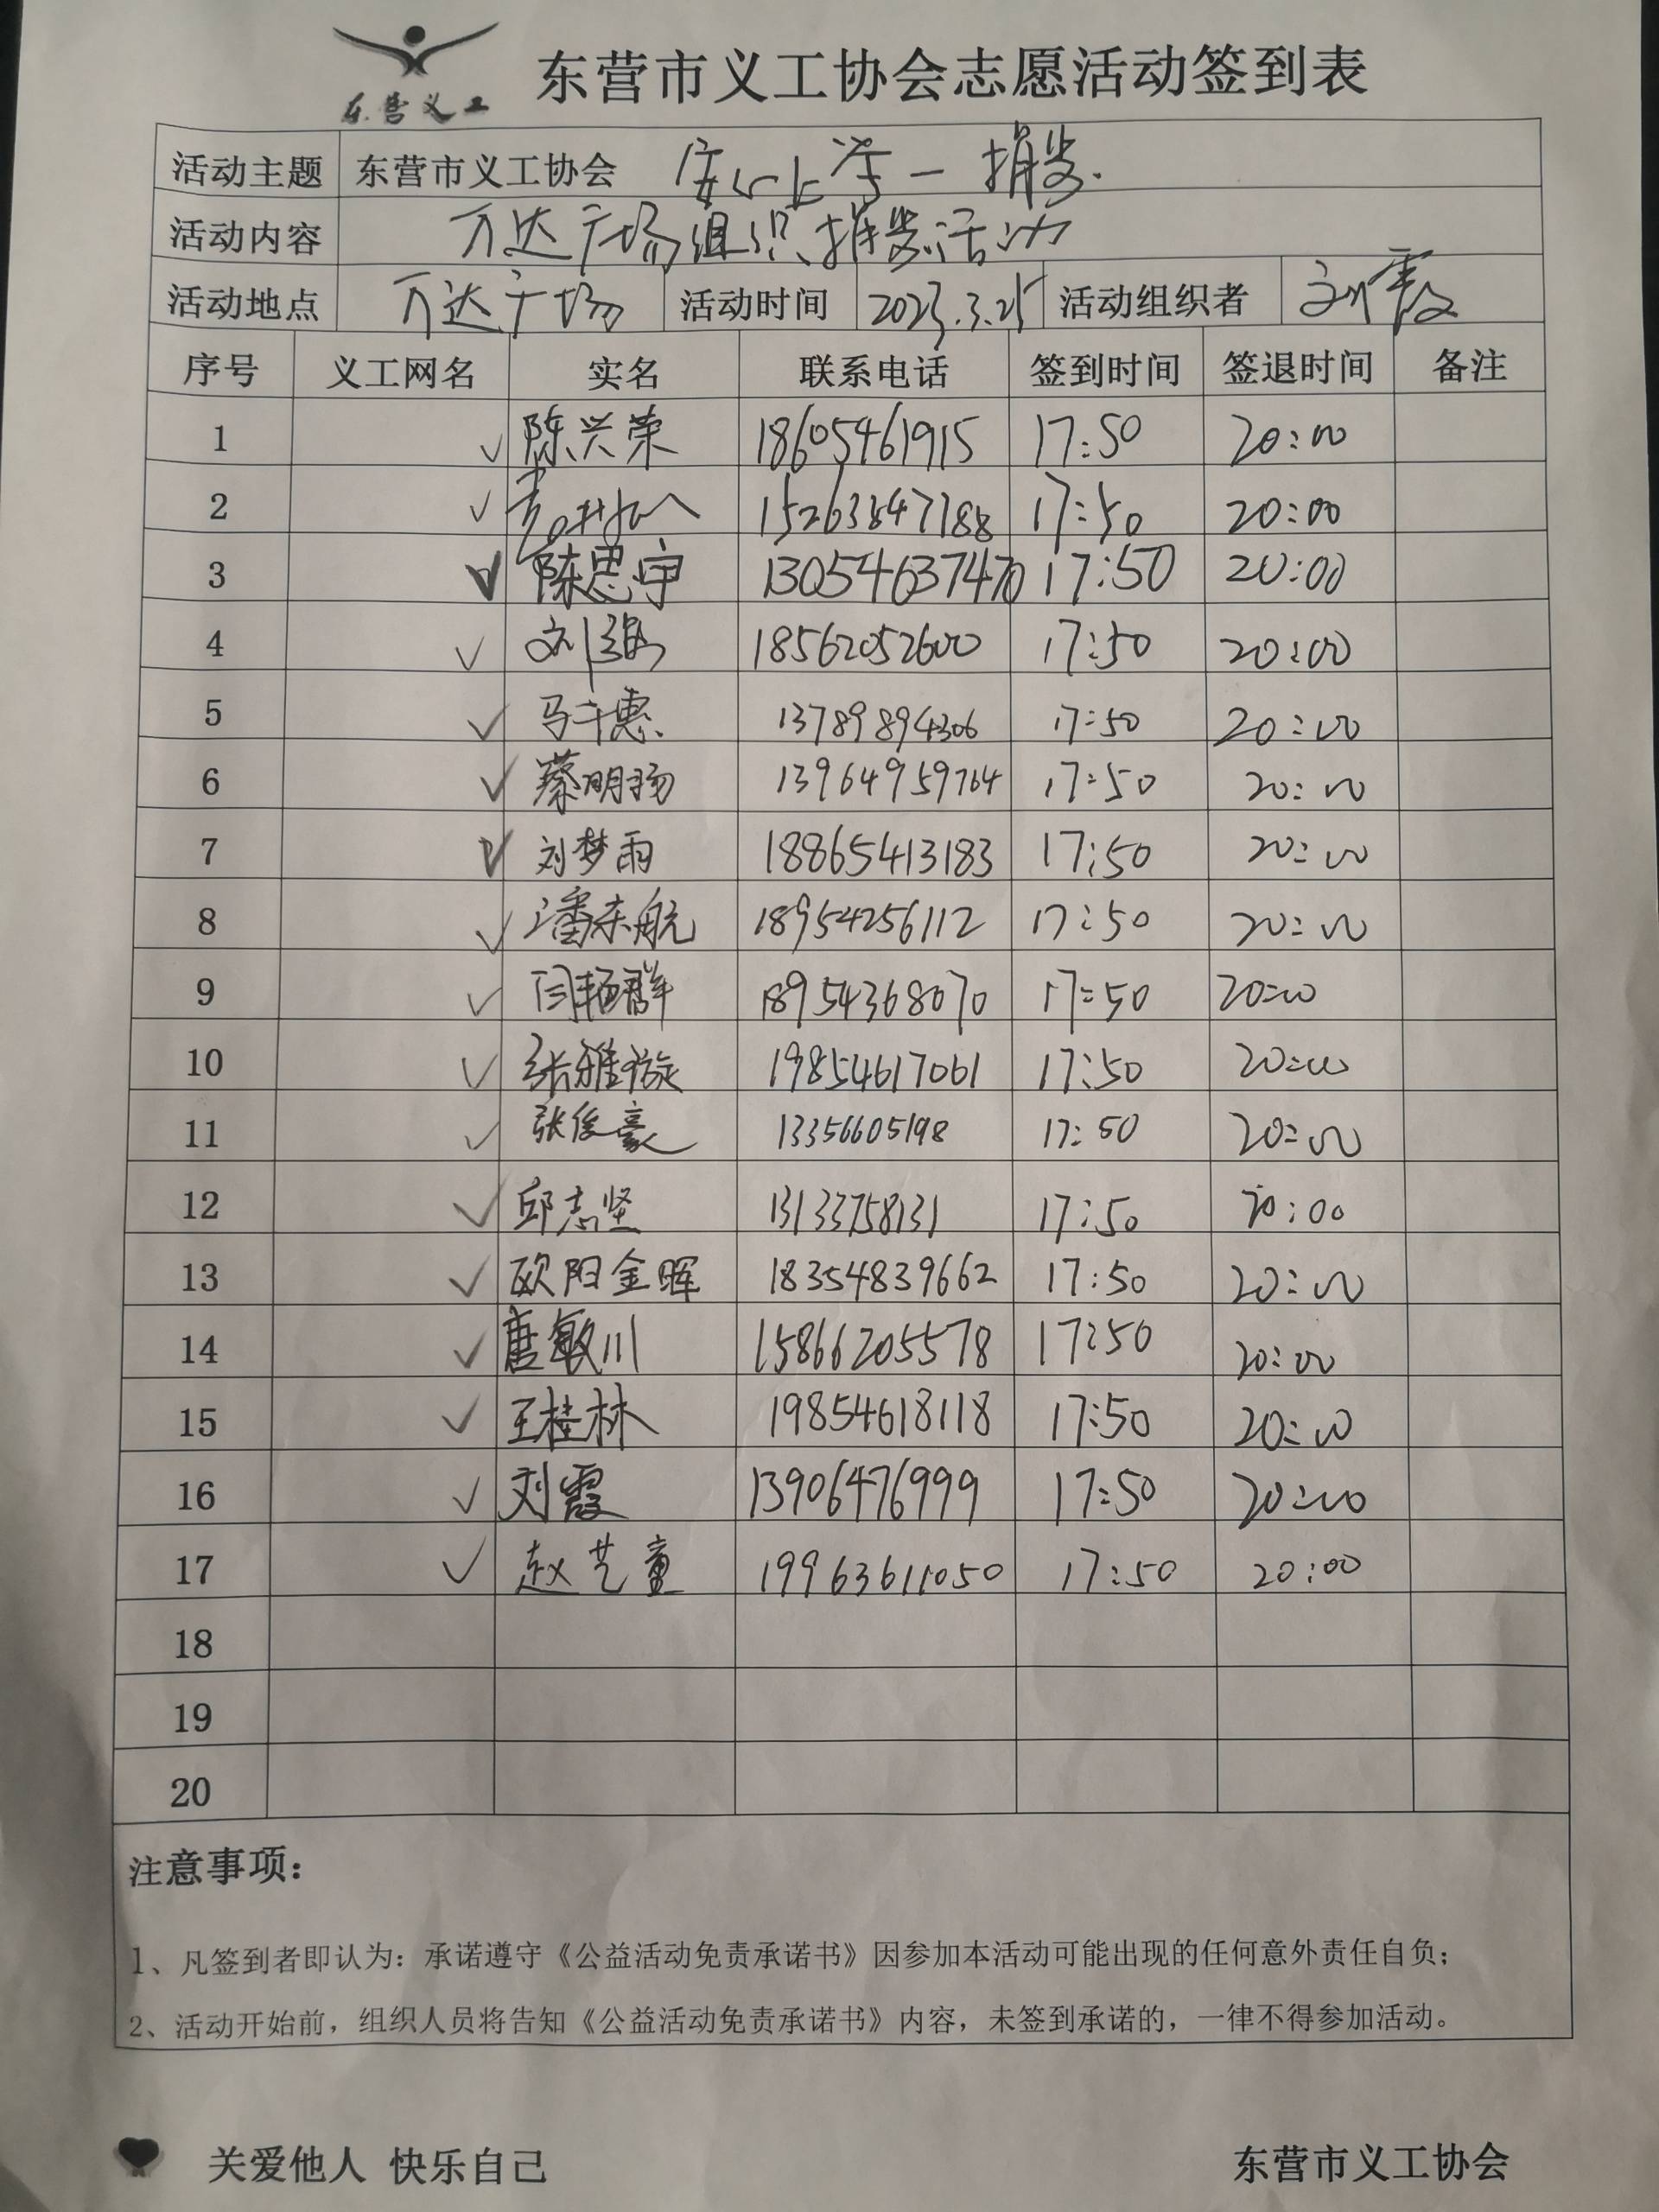 东营义工
东营市义工协会志愿活动签到表
活动主题 东营市义工协会 安心上学一捐发
活动内容 万达广场组织捐发活动
活动地点 万达广场 活动时间 2023.3.25 活动组织者 刘霞
序号 义工网名 实名 联系电话 签到时间 签退时间 备注
1 ✓ 陈兴荣 18605461915 17:50 20:00
2 ✓ 15263847188 17:50 20:00
3 ✓ 陈思宇 13054637470 17:50 20:00
4 ✓ 刘 18562052600 17:50 20:00
5 ✓ 马千惠 13789894306 17:50 20:00
6 ✓ 蔡明扬 13964959764 17:50 20:00
7 ✓ 刘梦雨 18865413183 17:50 20:00
8 ✓ 潘东航 18954256112 17:50 20:00
9 ✓ 闫 群 18954368070 17:50 20:00
10 ✓ 张雅璇 19854617061 17:50 20:00
11 ✓ 张俊豪 13356605198 17:50 20:00
12 ✓ 邱志坚 13133758131 17:50 20:00
13 ✓ 欧阳金晖 18354839662 17:50 20:00
14 ✓ 唐敏川 15866205578 17:50 20:00
15 ✓ 王桂林 19854618118 17:50 20:00
16 ✓ 刘霞 13906476999 17:50 20:00
17 ✓ 赵艺童 19963611050 17:50 20:00
18
19
20
注意事项：
1、凡签到者即认为：承诺遵守《公益活动免责承诺书》因参加本活动可能出现的任何意外责任自负；
2、活动开始前，组织人员将告知《公益活动免责承诺书》内容，未签到承诺的，一律不得参加活动。
关爱他人 快乐自己 东营市义工协会